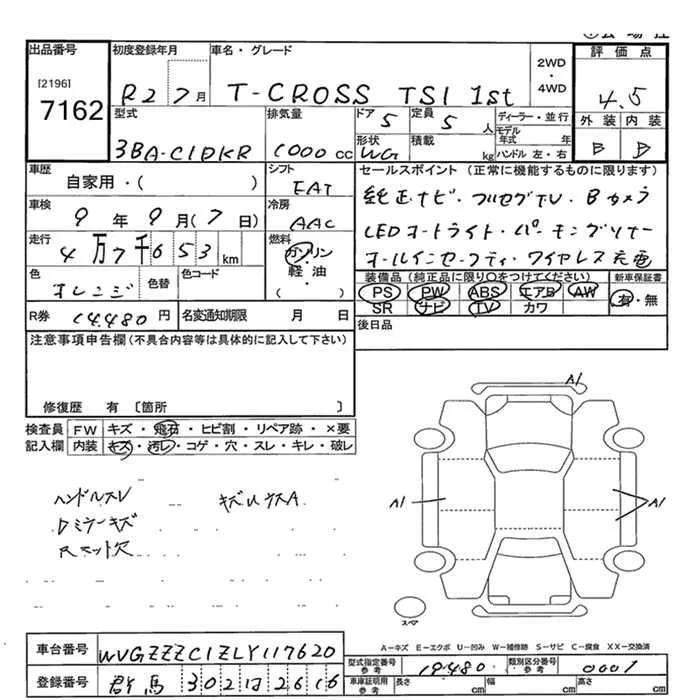 出品番号
[2196]
7162
初度登録年月
R2 7月
車名・グレード
T-CROSS TSI 1st
2WD
・
4WD
評価点
4.5
外装 内装
B B
型式
3BA-C1DKR
排気量
1000 cc
ドア
5
定員
5 人
ディーラー・並行
モデル年式 年
ハンドル 左・右
形状
WG
積載
kg
車歴
自家用・( )
シフト
EAT
車検
9年 9月(7日)
冷房
AAC
走行
4万7千653 km
燃料
ガソリン
軽・油
( )
色
オレンジ
色替
色コード
R券 14480 円
名変通知期限 月 日
セールスポイント (正常に機能するものに限ります)
純正ナビ・フルセグTV・Bカメラ
LEDオートライト・パーキングソナー
オールインセーフティ・ワイヤレス充電
装備品(純正品に限り○をつけてください)
新車保証書
PS PW ABS エアB AW
有・無
SR ナビ TV カワ
後日品
注意事項申告欄(不具合内容等は具体的に記入して下さい)
修復歴 有 〔箇所 〕
検査員 FW キズ・飛石・ヒビ割・リペア跡・×要
記入欄 内装 キズ・汚レ・コゲ・穴・スレ・キレ・破レ
ハンドルスレ
Dミラーキズ
A1
A1
A1
スペア
A-キズ E-エクボ U-凹み W-補修跡 S-サビ C-腐食 XX-交換済
車台番号 WVGZZZC1ZLY117620
登録番号 群馬 302 は 2616
型式指定番号
参考
19480
類別区分番号
参考
0001
車庫証明用
参考
長さ cm 幅 cm 高さ cm